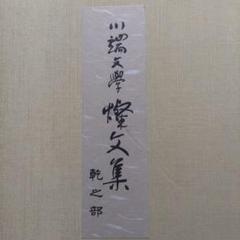 川端文學
燦文集
乾之部